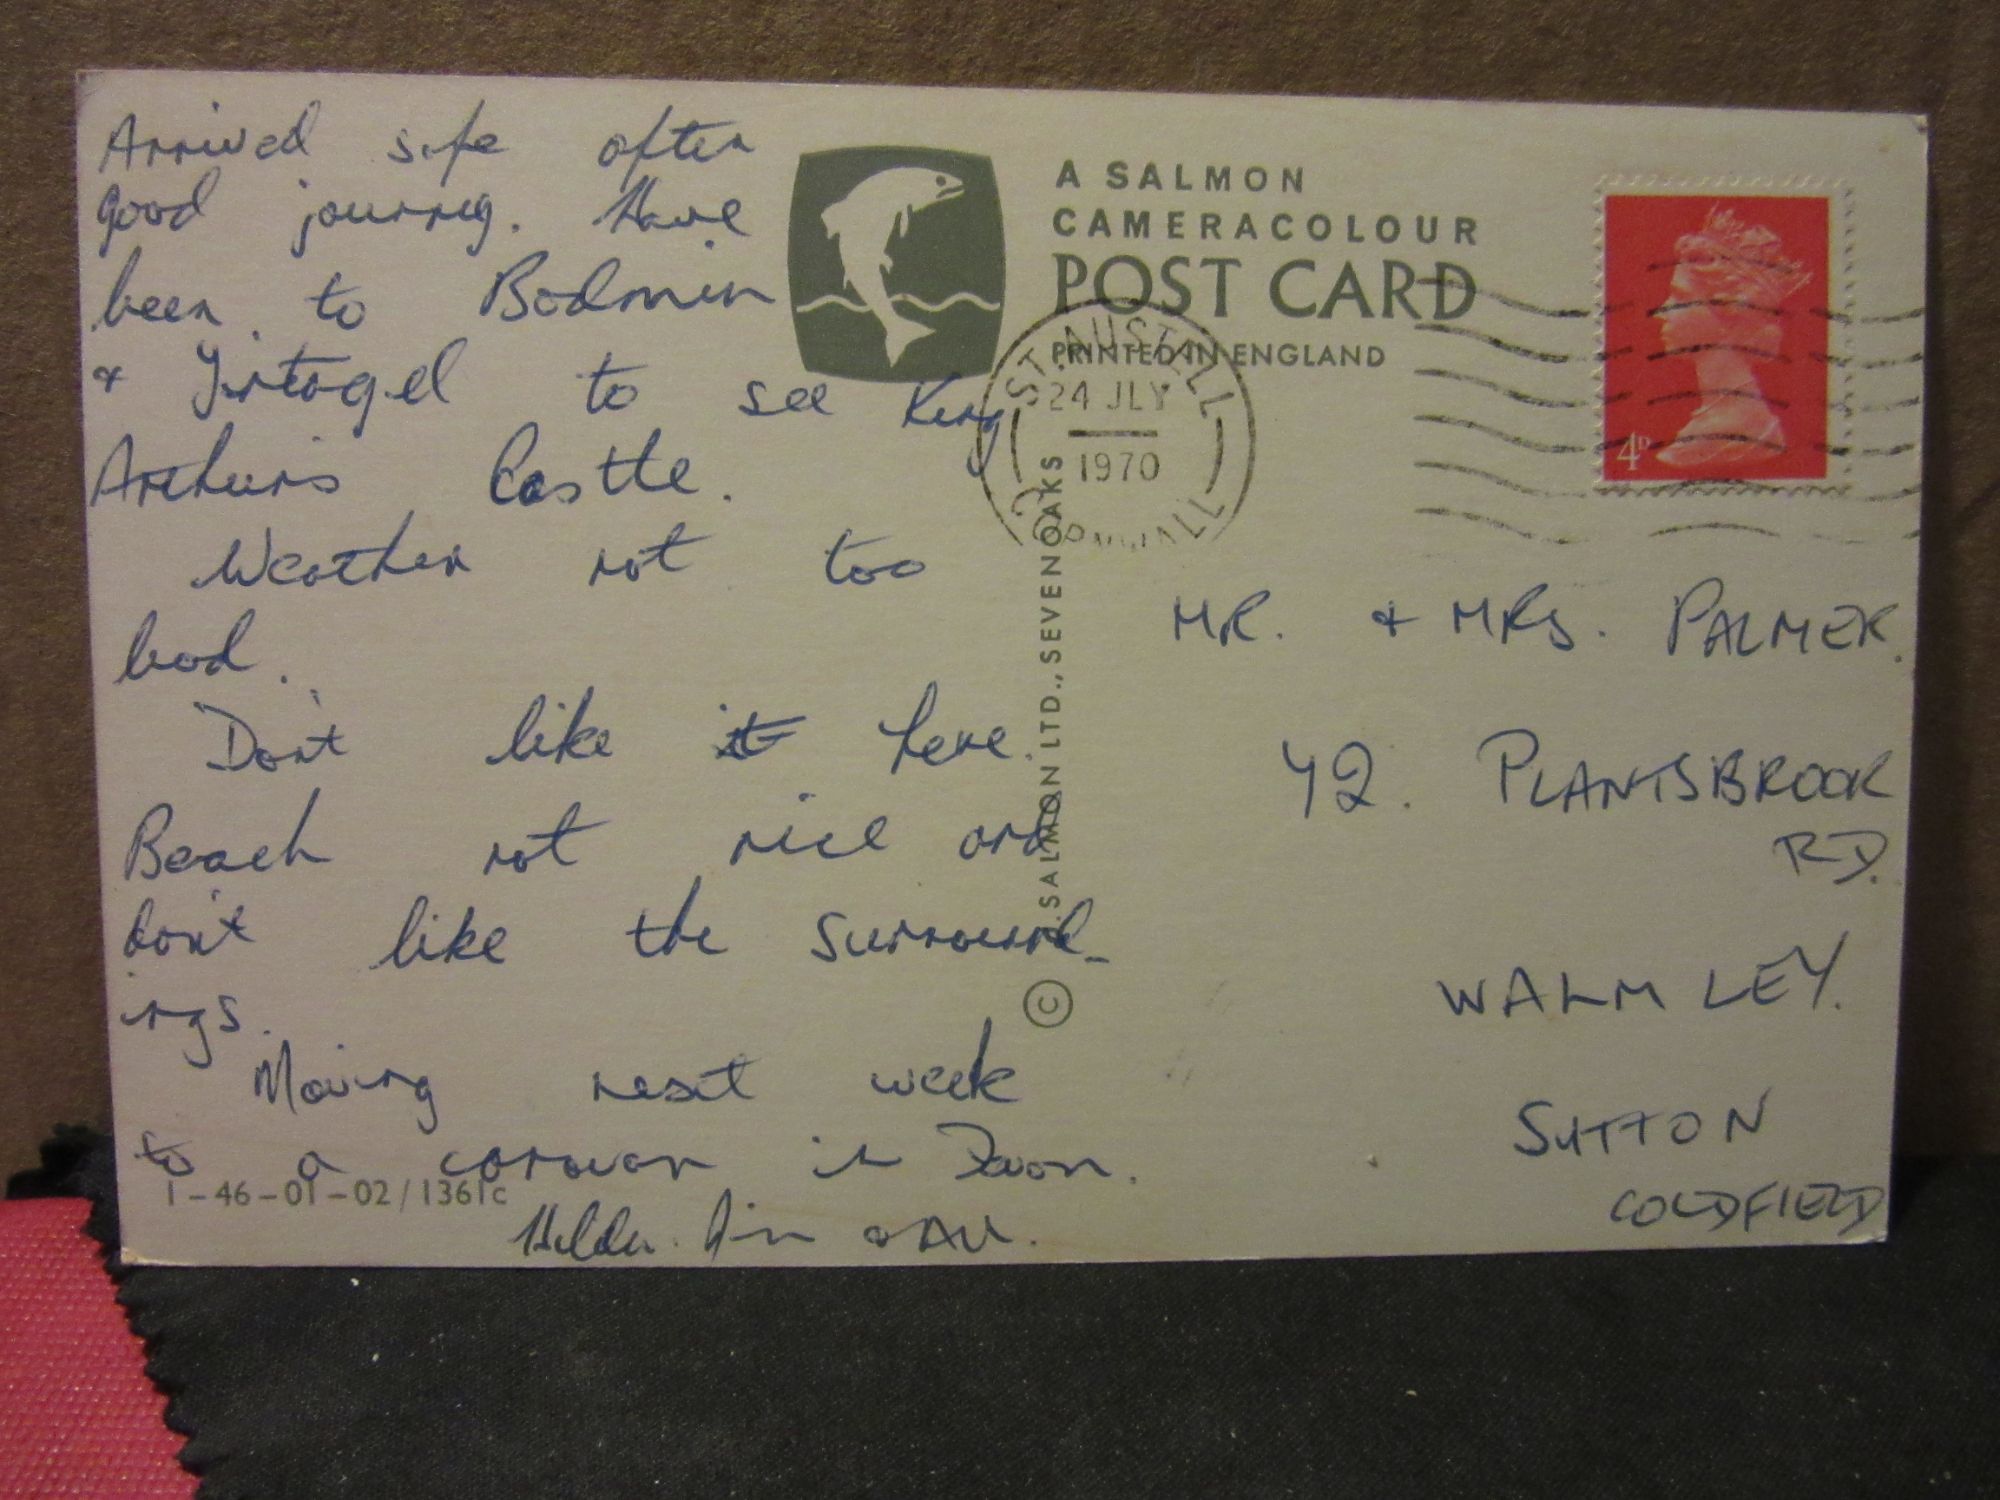 Arrived safe after
good journey. Have
been to Bodmin
& Tintagel to see King
Arthurs Castle.
Weather not too
bad.
Don't like it here.
Beach not nice and
don't like the surround-
ings.
Moving next week
to a caravan in Devon.
Hilda. Jim &
A SALMON
CAMERACOLOUR
POST CARD
PRINTED IN ENGLAND
ST. AUSTELL
24 JLY
1970
CORNWALL
4D
© J. SALMON LTD., SEVENOAKS
MR. & MRS. PALMER.
42. PLANTSBROOK
RD.
WALMLEY.
SUTTON
COLDFIELD
1-46-01-02/1361c